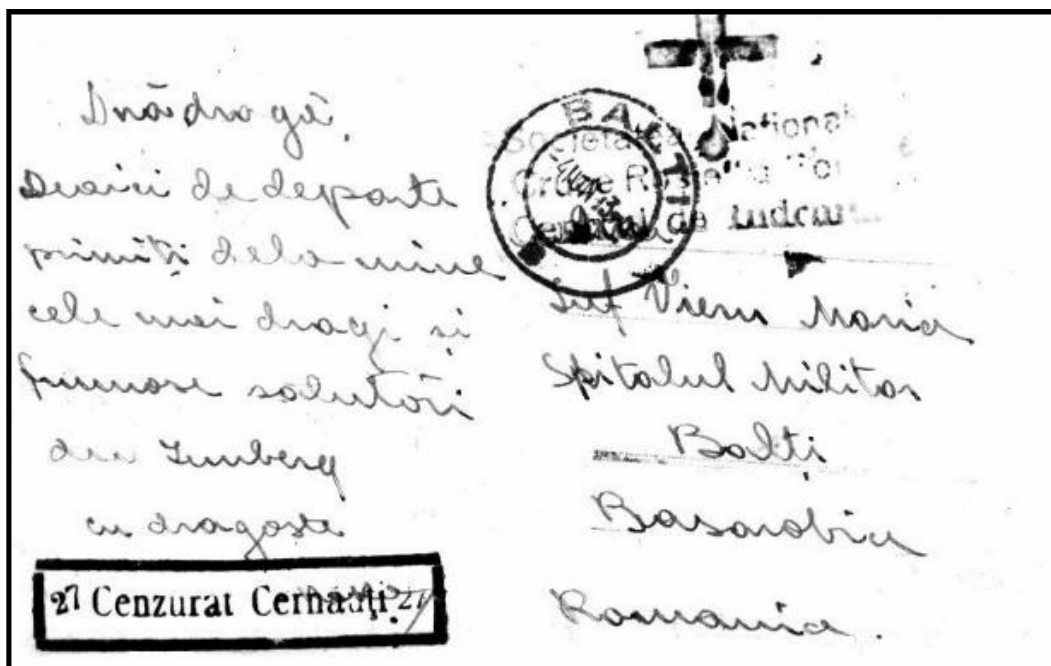 dragă
de departe
primiți dela mine
cele mai dragi și
frumoase salutări
din
cu dragoste
27 Cenzurat Cernăuți 27
BALTI
Societatea Național
Crucie
de
Vieru Maria
Spitalul Militar
Balți
Basarabia
Romania.